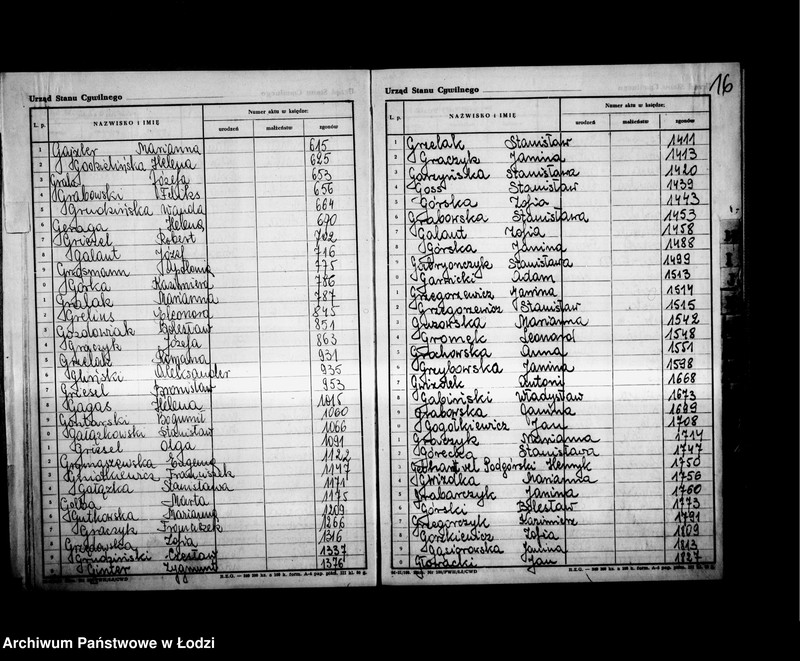 Urząd Stanu Cywilnego
L. p. NAZWISKO I IMIĘ Numer aktu w księdze:
urodzeń małżeństw zgonów
1 Gajzler Marianna 615
2 Helena 625
3 Józefa 653
4 Grabowski Feliks 656
5 Grudzińska Wanda 664
6 Helena 690
7 Griesel Robert 702
8 Galant Józef 716
9 Grossmann 775
0 Górka Kazimiera 786
1 Marianna 787
2 Grelius Eleonora 845
3 Bolesław 851
4 Grączyk Józefa 863
5 Grzelak Romalna 931
6 Gliński Aleksander 935
7 Griesel Bronisław 953
8 Gagas Helena 1015
9 Gontarski Bogumił 1060
0 Gałązkowski Stanisław 1066
1 Griesel Olga 1091
2 Gromaszewska Eugenia 1122
3 Franciszek 1147
4 Gałązka Stanisława 1171
5 Gelba Marta 1175
6 Gutkowska Marianna 1209
7 Graczyk Franciszek 1266
8 Zofia 1316
9 Grudziński Czesław 1337
0 Ginter Zygmunt 1376
16
Urząd Stanu Cywilnego
L. p. NAZWISKO I IMIĘ Numer aktu w księdze:
urodzeń małżeństw zgonów
1 Grzelak Stanisław 1411
2 Graczyk Janina 1413
3 Garzyńska Stanisława 1420
4 Goss Stanisław 1439
5 Górska Zofia 1443
6 Grabowska Stanisława 1453
7 Galant Zofia 1458
8 Górska Janina 1488
9 Gabryończyk Stanisława 1499
0 Garlicki Adam 1513
1 Grzegorzewicz Janina 1514
2 Grzegorzewicz Stanisław 1515
3 Marianna 1542
4 Gromek Leonard 1548
5 Grochowska Anna 1551
6 Grzybowska Janina 1598
7 Antoni 1668
8 Gabiński Władysław 1673
9 Grabowska Janina 1699
0 Gogółkiewicz Jan 1708
1 Graczyk Marianna 1714
2 Górecka Stanisława 1747
3 Gebhart vel Podgórski Henryk 1750
4 Gwizdka Marianna 1756
5 Grabarczyk Janina 1760
6 Górski Bolesław 1773
7 Grzegorczyk Kazimierz 1791
8 Gorzkiewicz Zofia 1809
9 Gąsiorowska Janina 1813
0 Głowacki Jan 1827
Archiwum Państwowe w Łodzi